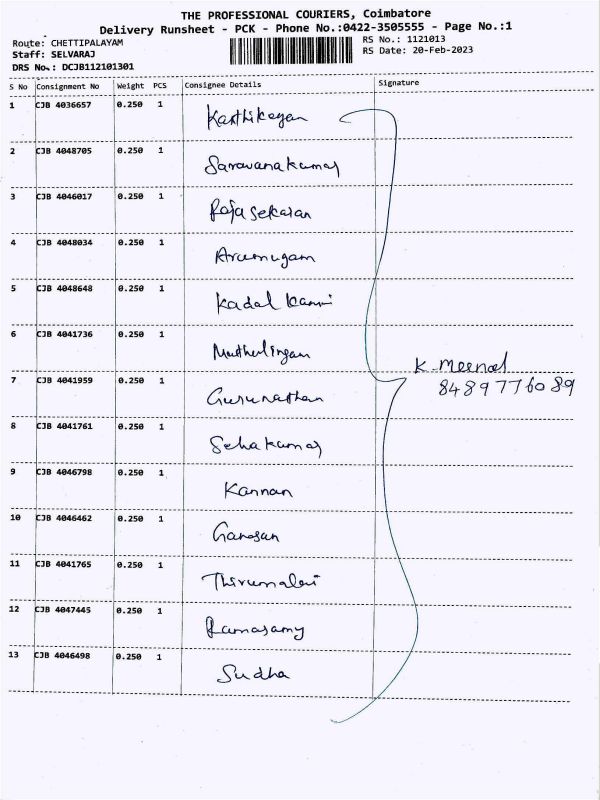 THE PROFESSIONAL COURIERS, Coimbatore
Delivery Runsheet - PCK - Phone No.:0422-3505555 - Page No.:1
Route: CHETTIPALAYAM
Staff: SELVARAJ
DRS No.: DCJB112101301
RS No.: 1121013
RS Date: 20-Feb-2023
S No Consignment No Weight PCS Consignee Details Signature
1 CJB 4036657 0.250 1 Karthikeyan
2 CJB 4048705 0.250 1 Saravanakumar
3 CJB 4046017 0.250 1 Rajasekaran
4 CJB 4048034 0.250 1 Arumugam
5 CJB 4048648 0.250 1 Kadal Kanni
6 CJB 4041736 0.250 1 Muthulingam
K. Meenal
7 CJB 4041959 0.250 1 Gurunathan
8489776089
8 CJB 4041761 0.250 1
9 CJB 4046798 0.250 1 Kannan
10 CJB 4046462 0.250 1 Ganesan
11 CJB 4041765 0.250 1 Thirumalai
12 CJB 4047445 0.250 1 Ramasamy
13 CJB 4046498 0.250 1 Sudha